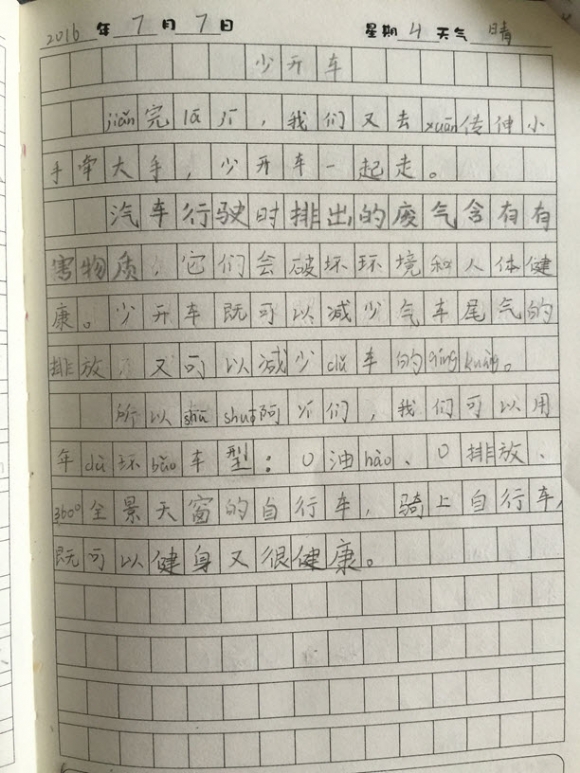 2016年7月7日 星期4天气晴
少开车
jiǎn完lā jī，我们又去xuān传伸小
手牵大手，少开车一起走。
汽车行驶时排出的废气含有有
害物质，它们会破坏环境和人体健
康。少开车既可以减少汽车尾气的
排放，又可以减少dǔ车的qíng kuàng。
所以shū shu阿yí们，我们可以用
年dù环bǎo车型：0油hào、0排放、
360°全景天窗的自行车，骑上自行车，
既可以健身又很健康。